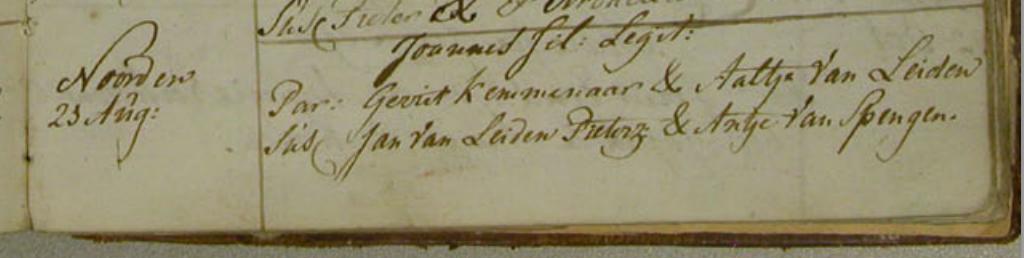 Sus Pieter &
Joannes fil: Legit:
Noorden
23 Aug:
Par: Gerrit Kemmenaar & Aaltje Van Leiden
Sus Jan Van Leiden Pieterz & Antje Van Spengen.